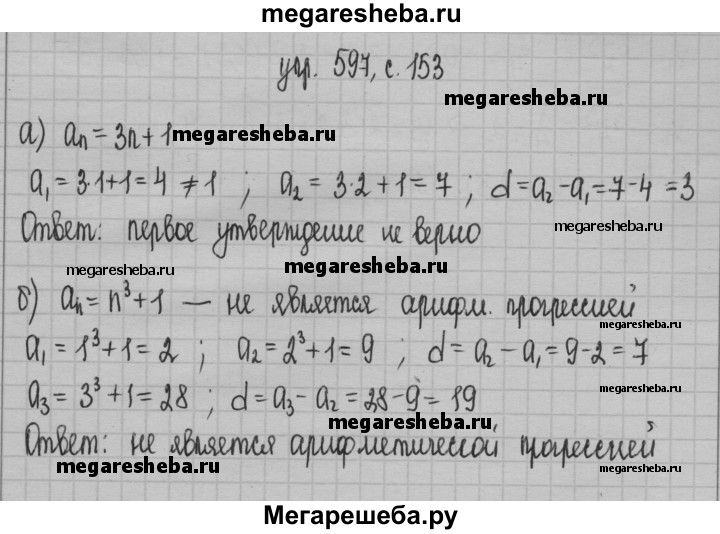 megaresheba.ru
упр. 597, с. 153
megaresheba.ru
а) aₙ = 3n + 1 megaresheba.ru
a₁ = 3·1+1 = 4 ≠ 1 ; a₂ = 3·2 + 1 = 7 ; d = a₂ - a₁ = 7 - 4 = 3
Ответ: первое утверждение не верно megaresheba.ru
megaresheba.ru megaresheba.ru
б) aₙ = n³ + 1 — не является арифм. прогрессией
megaresheba.ru
a₁ = 1³ + 1 = 2 ; a₂ = 2³ + 1 = 9 ; d = a₂ - a₁ = 9 - 2 = 7
a₃ = 3³ + 1 = 28 ; d = a₃ - a₂ = 28 - 9 = 19 megaresheba.ru
megaresheba.ru
Ответ: не является арифметической прогрессией
megaresheba.ru megaresheba.ru
Мегарешеба.ру